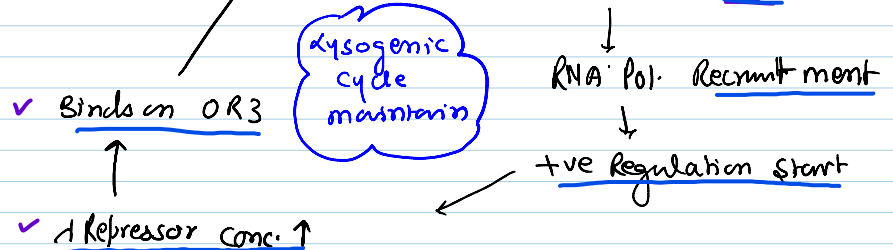 Lysogenic
Cycle
maintain
RNA Pol. Recruitment
✓ Binds on OR3
+ve Regulation Start
✓ λ Repressor conc. ↑